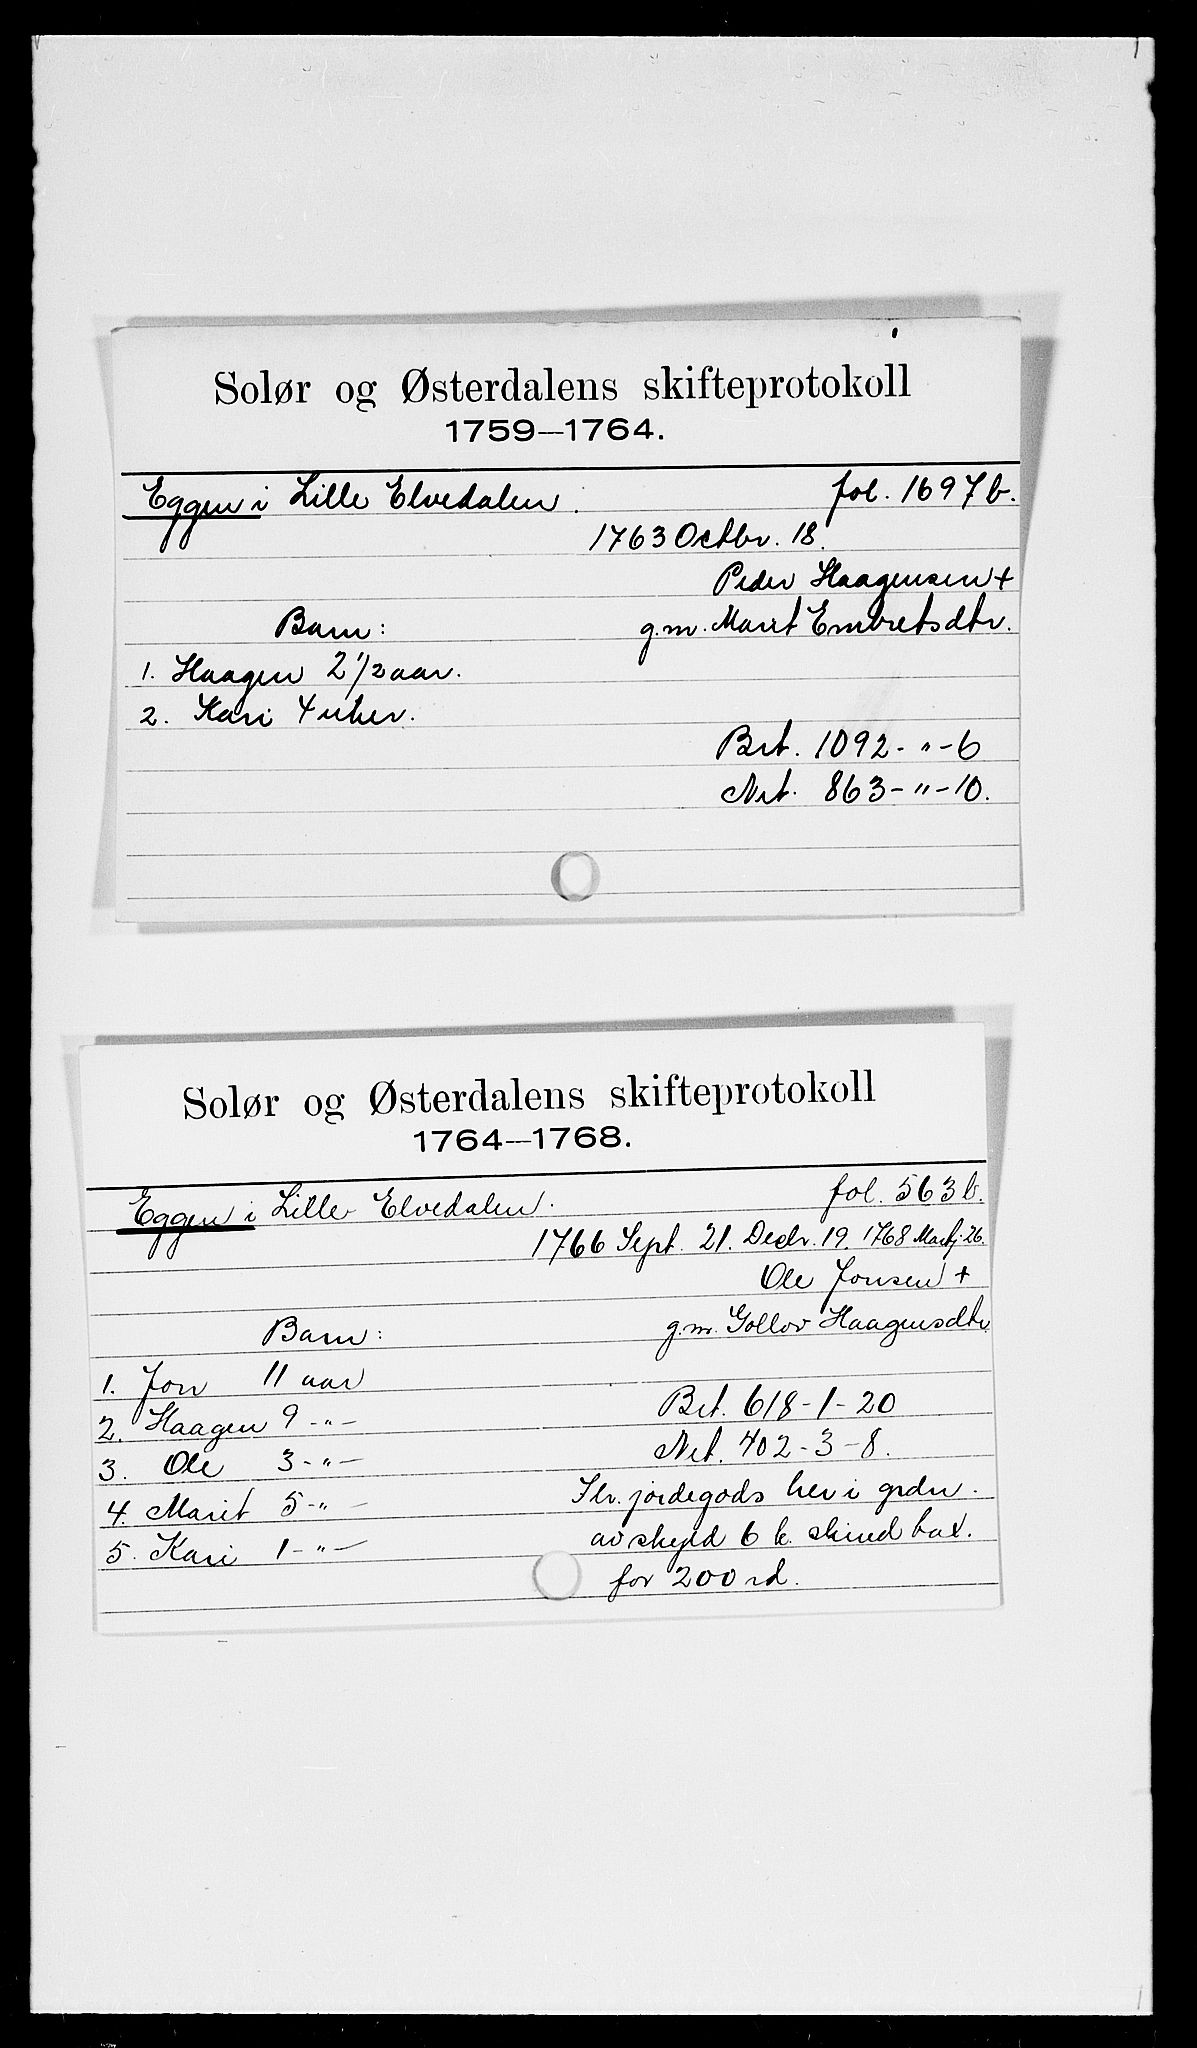 Solør og Østerdalens skifteprotokoll
1759—1764.
Eggen i Lille Elvedalen. fol. 1697 b.
1763 Octbr. 18.
Peder Haagensen +
Barn: g.m. Marit Embretsdtr.
1. Haagen 2 1/2 aar.
2. Kari 4 uker.
Brt. 1092 - " - 6
Net. 863 - " - 10.
Solør og Østerdalens skifteprotokoll
1764—1768.
Eggen i Lille Elvedalen. fol. 563 b.
1766 Sept. 21. Decbr. 19. 1768 Martj. 26.
Ole Jonsen +
Barn: g.m. Gollov Haagensdtr.
1. Jon 11 aar
2. Haagen 9 - " - Brt. 618 - 1 - 20
3. Ole 3 - " - Net. 402 - 3 - 8.
4. Marit 5 - " - jordegods her i grdn.
5. Kari 1 - " - av skyld 6 k. skind tax.
for 200 rd.